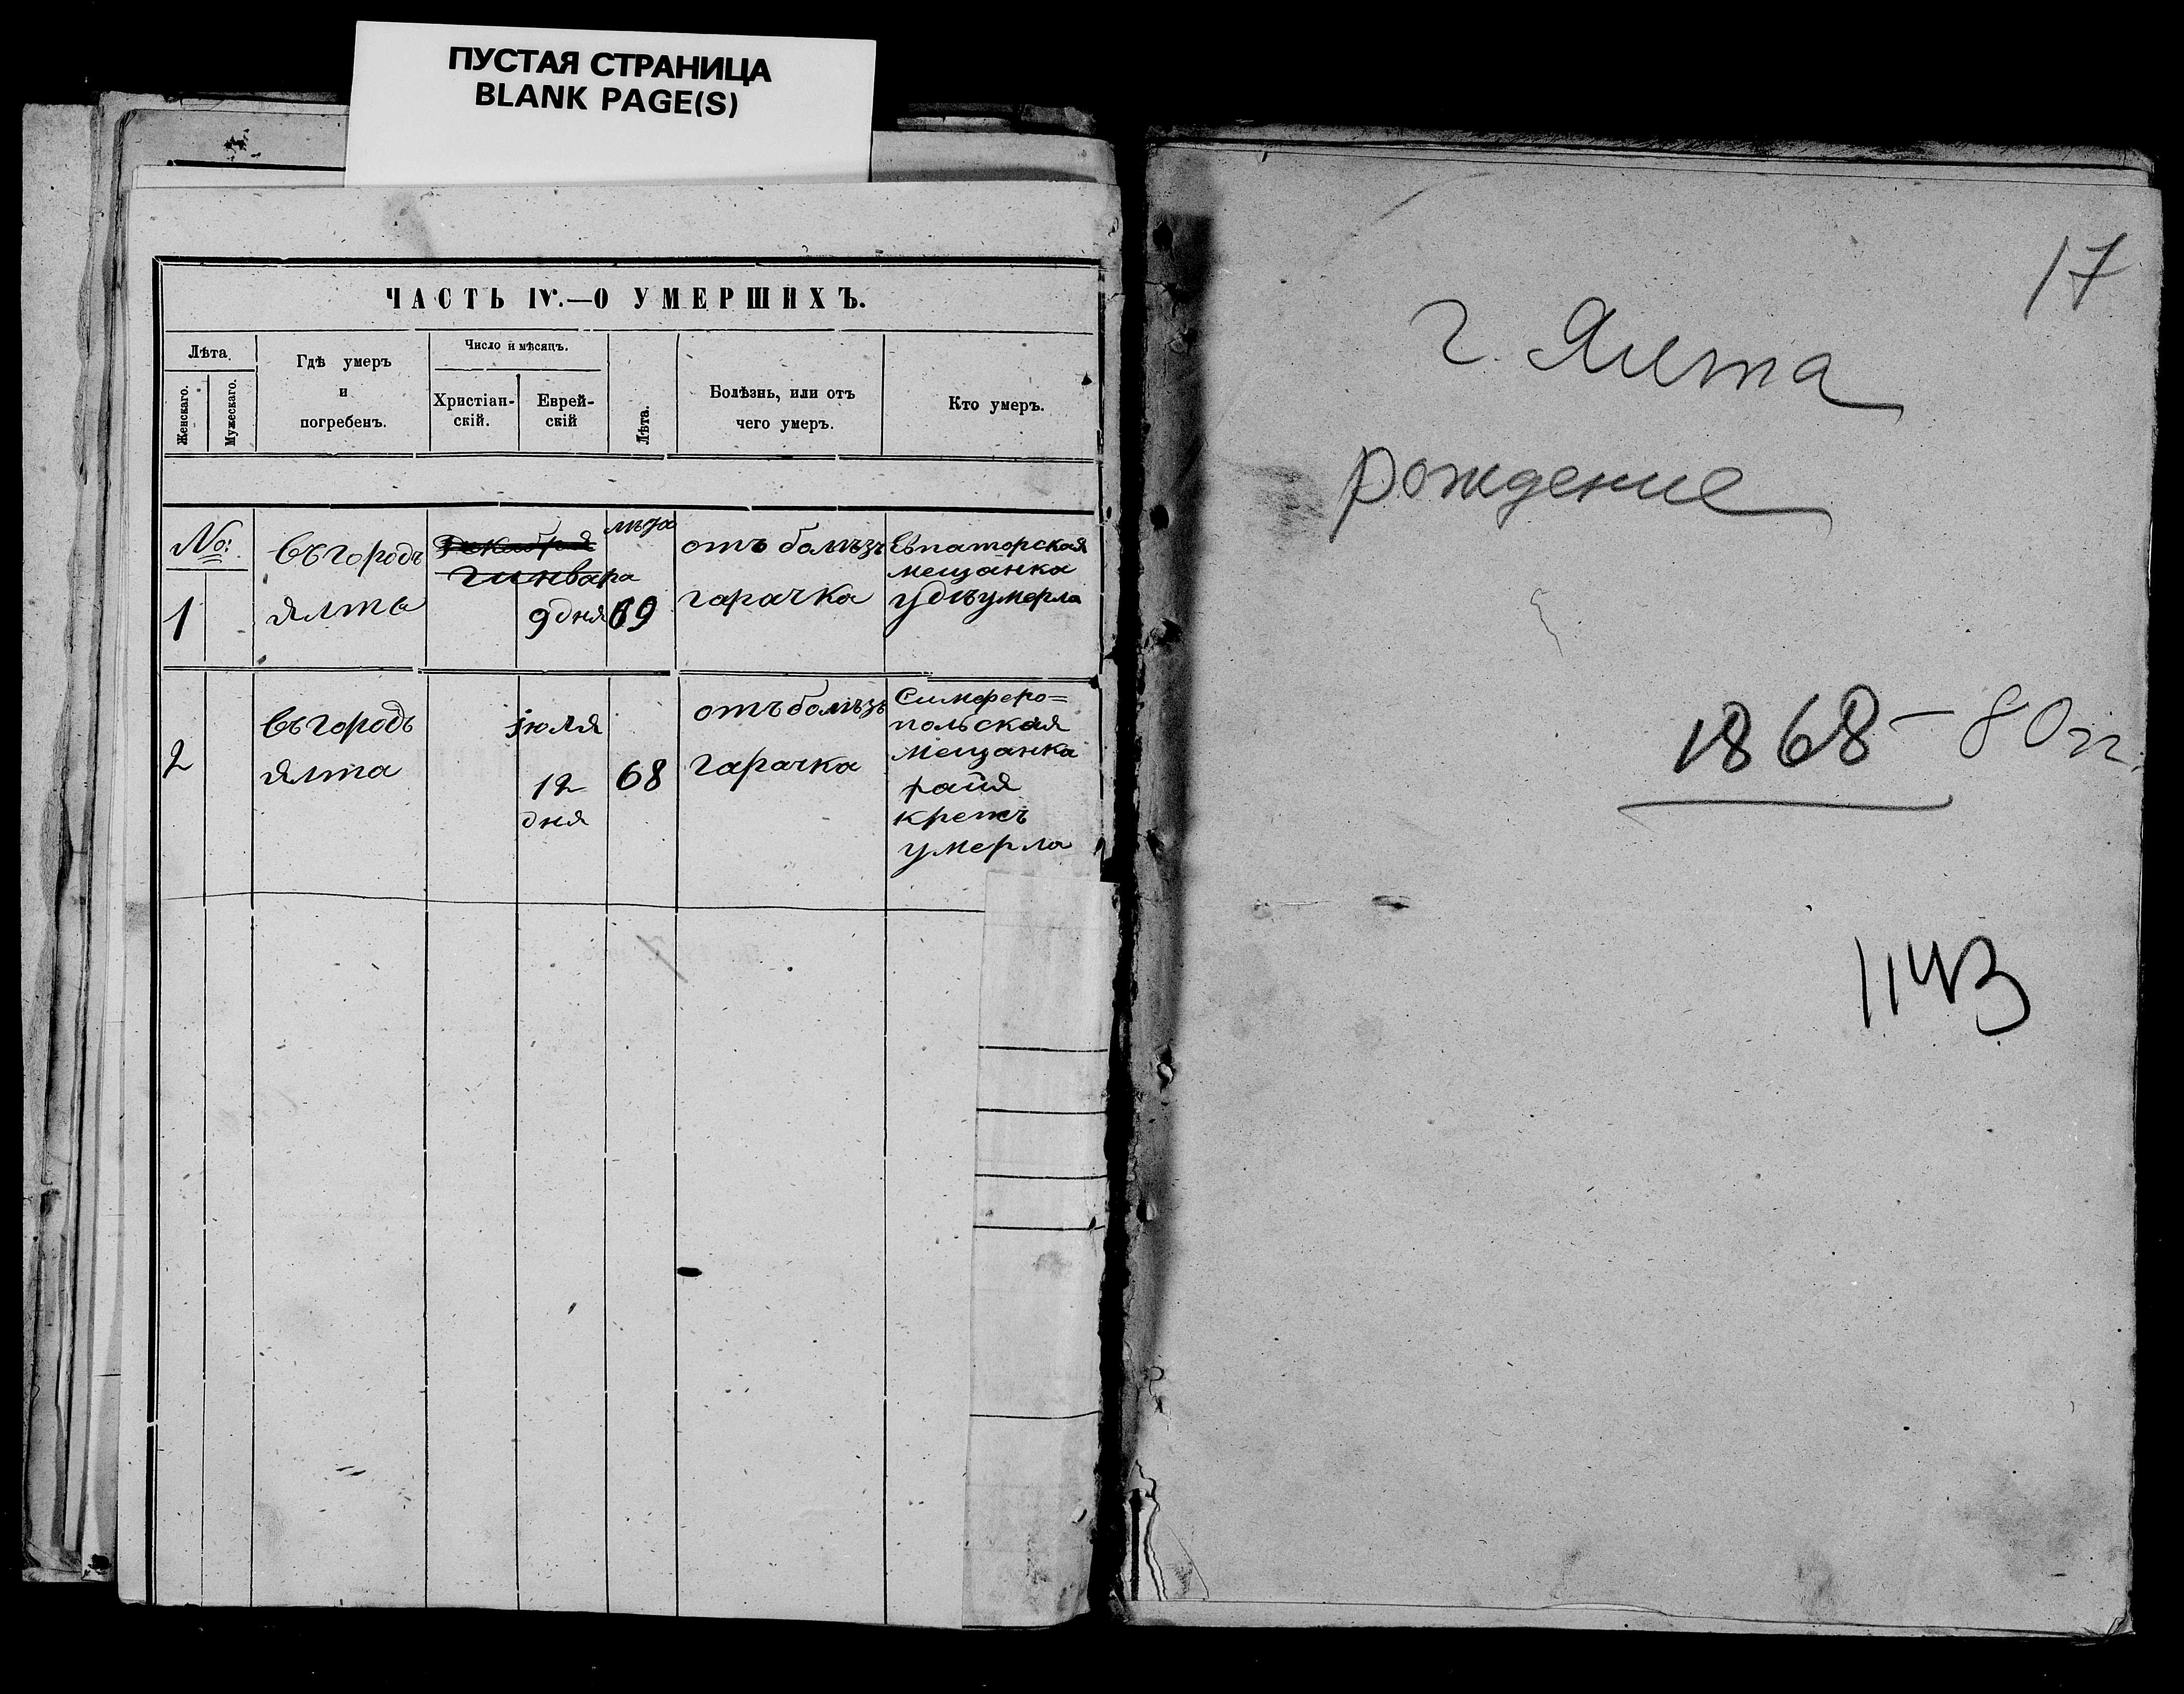 ПУСТАЯ СТРАНИЦА
BLANK PAGE(S)
ЧАСТЬ IV.—О УМЕРШИХЪ.
Лѣта.
Женскаго.
Мужескаго.
Гдѣ умеръ
и
погребенъ.
Число и мѣсяцъ.
Христіан-
скій.
Еврей-
скій
Лѣта.
Болѣзнь, или отъ
чего умеръ.
Кто умеръ.
№:
1
въ городъ
Ялта
9 дня
69
отъ болѣзъ
гарачка
Евпаторская
мещанка
умерла
2
въ городъ
Ялта
іюля
12
дня
68
отъ болѣзъ
гарачка
Симферо=
польская
мещанка
умерла
17
г. Ялта
рождение
1868-80 гг.
1143